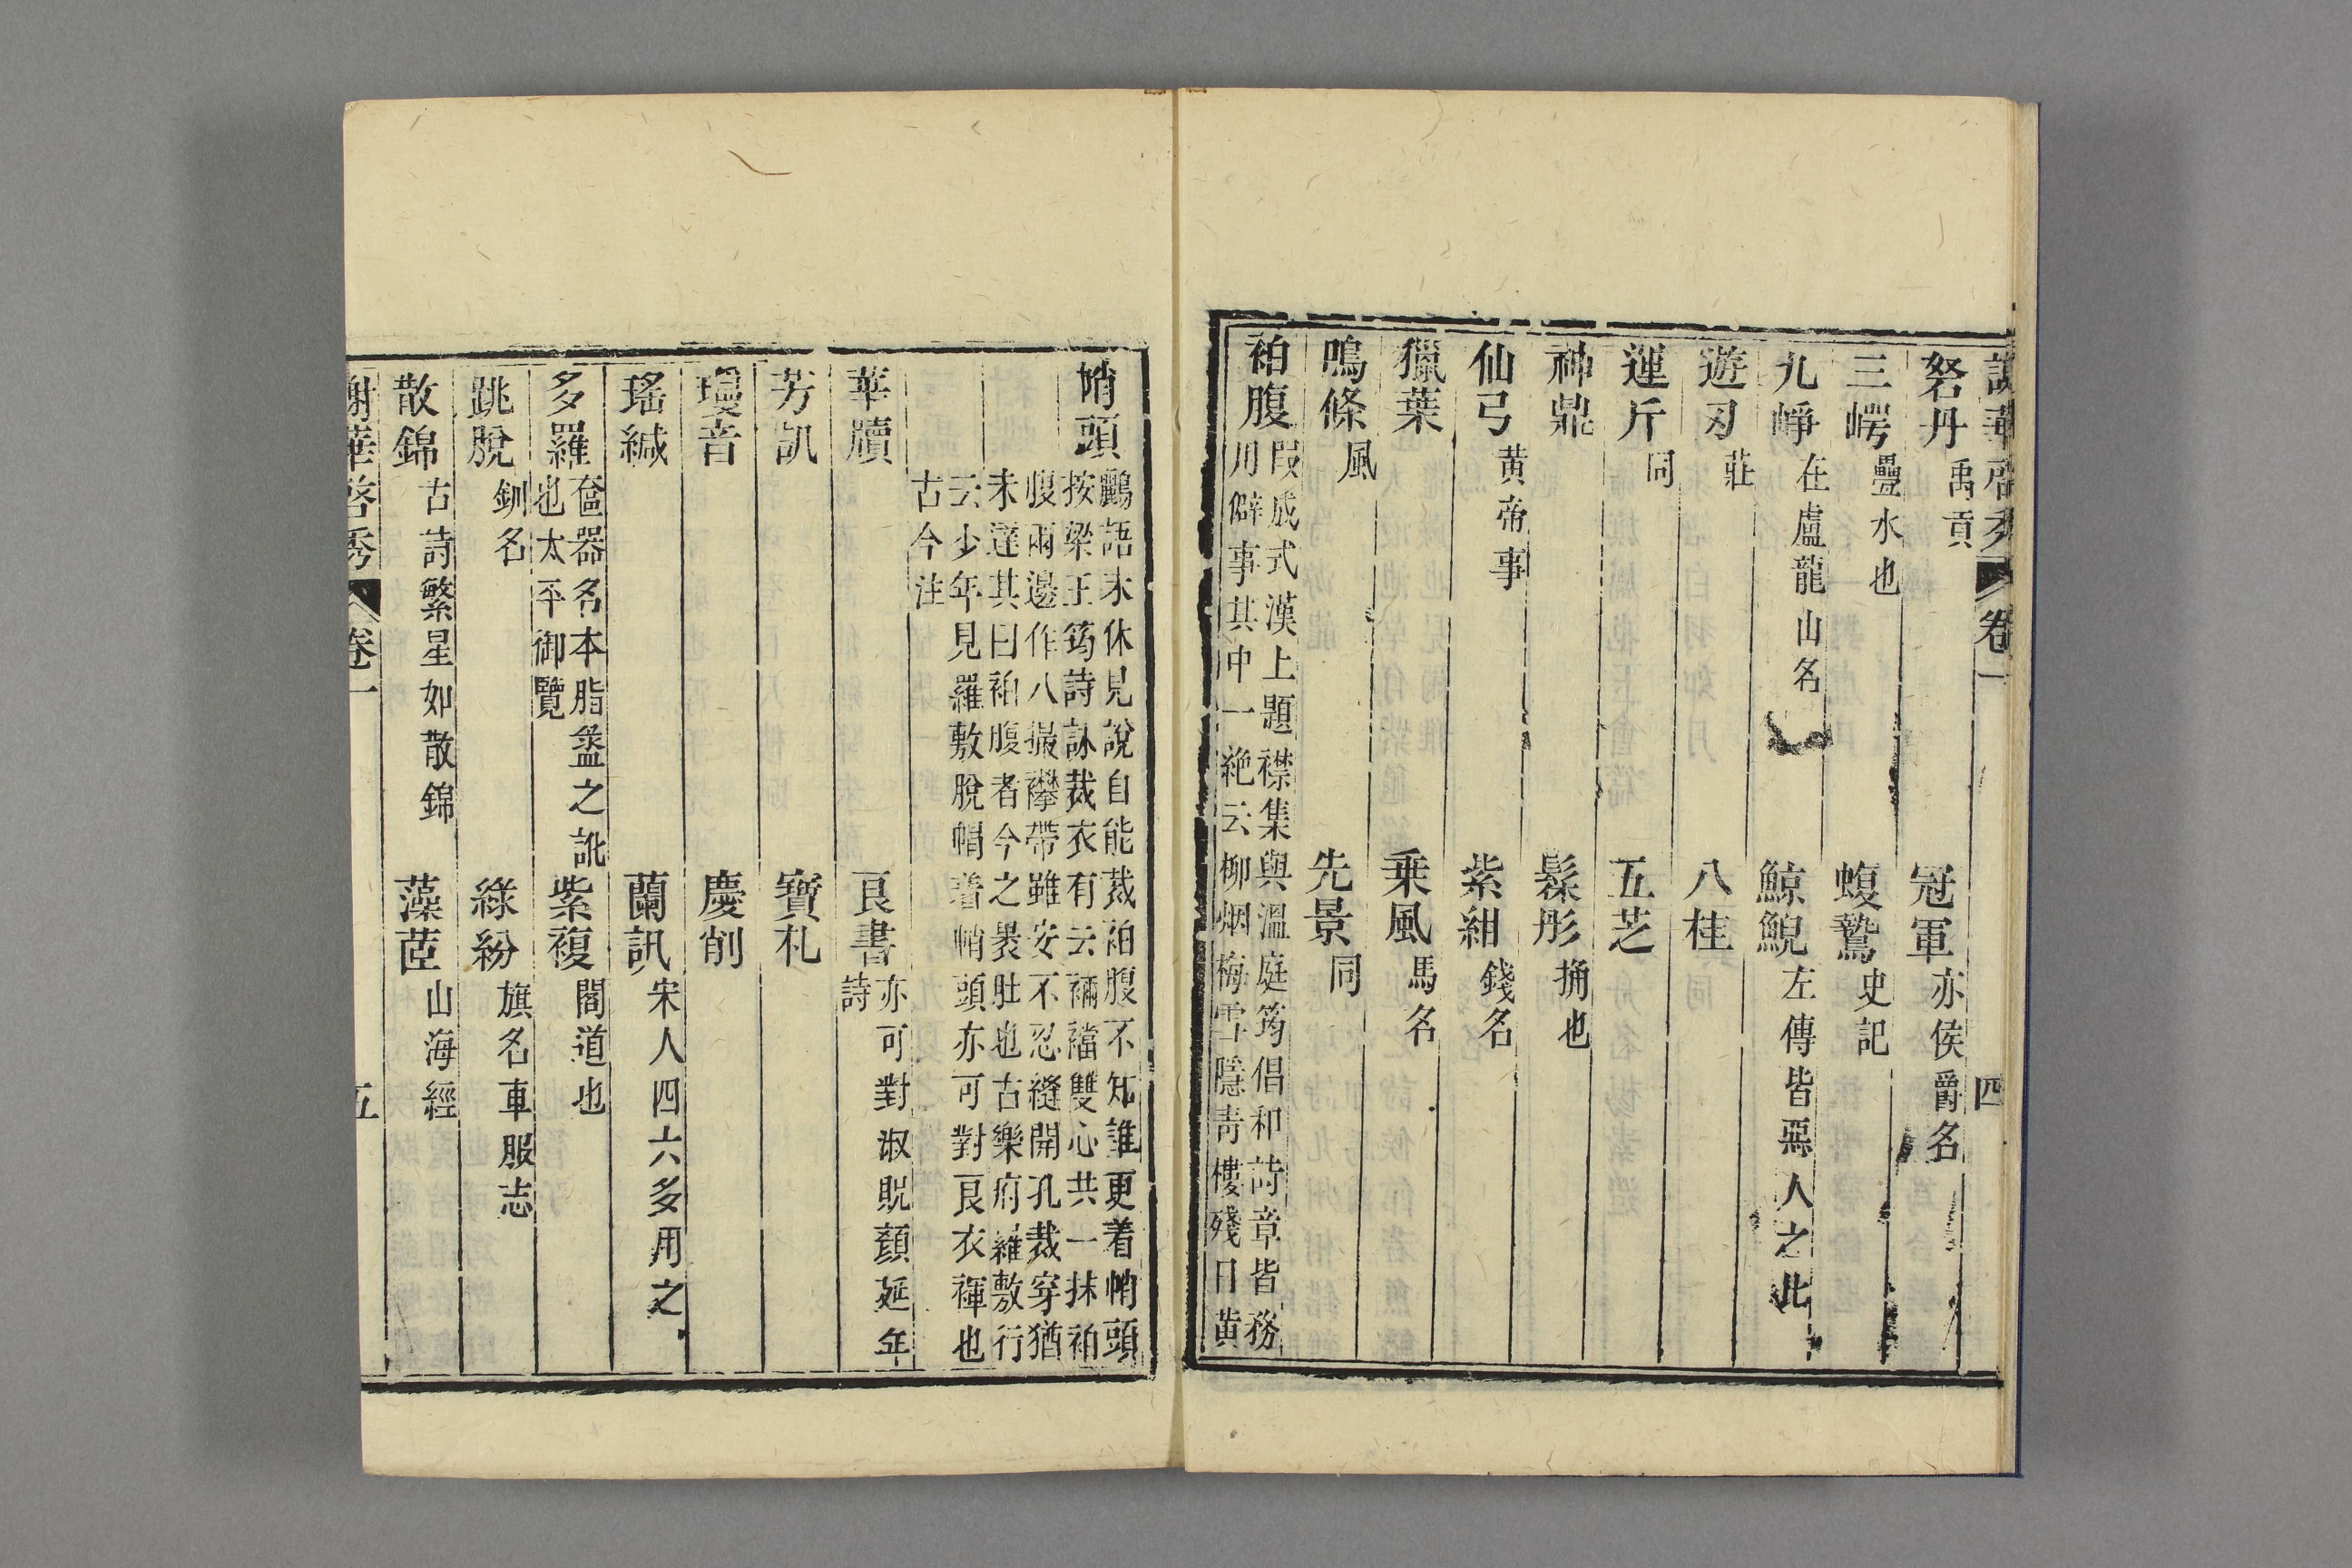 謝華啓秀 卷一 四
砮丹 禹貢 冠軍 亦侯爵名
三崿 疊水也 蝮鷙 史記
九崢 在盧龍山名 鯨鯢 左傳皆惡人之此
遊刃 莊 八桂
運斤 同 五芝
神鼎 鬆彤 㧾也
仙弓 黄帝事 紫紺 錢名
獵葉 乗風 馬名
鳴條 風 先景 同
袙腹 段成式漢上題襟集與溫庭筠倡和詩章皆務
用僻事其中一絶云柳烟梅雪隱青樓殘日黄
鸝語未休見說自能裁袙腹不知誰更着帩頭
帩頭 按梁王筠詩詠裁衣有云裲襠雙心共一抹袙
腹兩邊作八撮襻帶雖安不忍縫開孔裁穿猶
未達其曰袙腹者今之褁肚也古樂府羅敷行
云少年見羅敷脫帽着帩頭亦可對良衣褌也
古今注
華牘 良書 亦可對淑貺顏延年
詩
芳訊 寶札
瓊音 慶削
瑤緘 蘭訊 宋人四六多用之
多羅 奩器名本脂盝之訛
也太平御覽 紫複 閣道也
跳脫 釧名 綠紛 旗名車服志
散錦 古詩繁星如散錦 藻茝 山海經
謝華啓秀 卷一 五